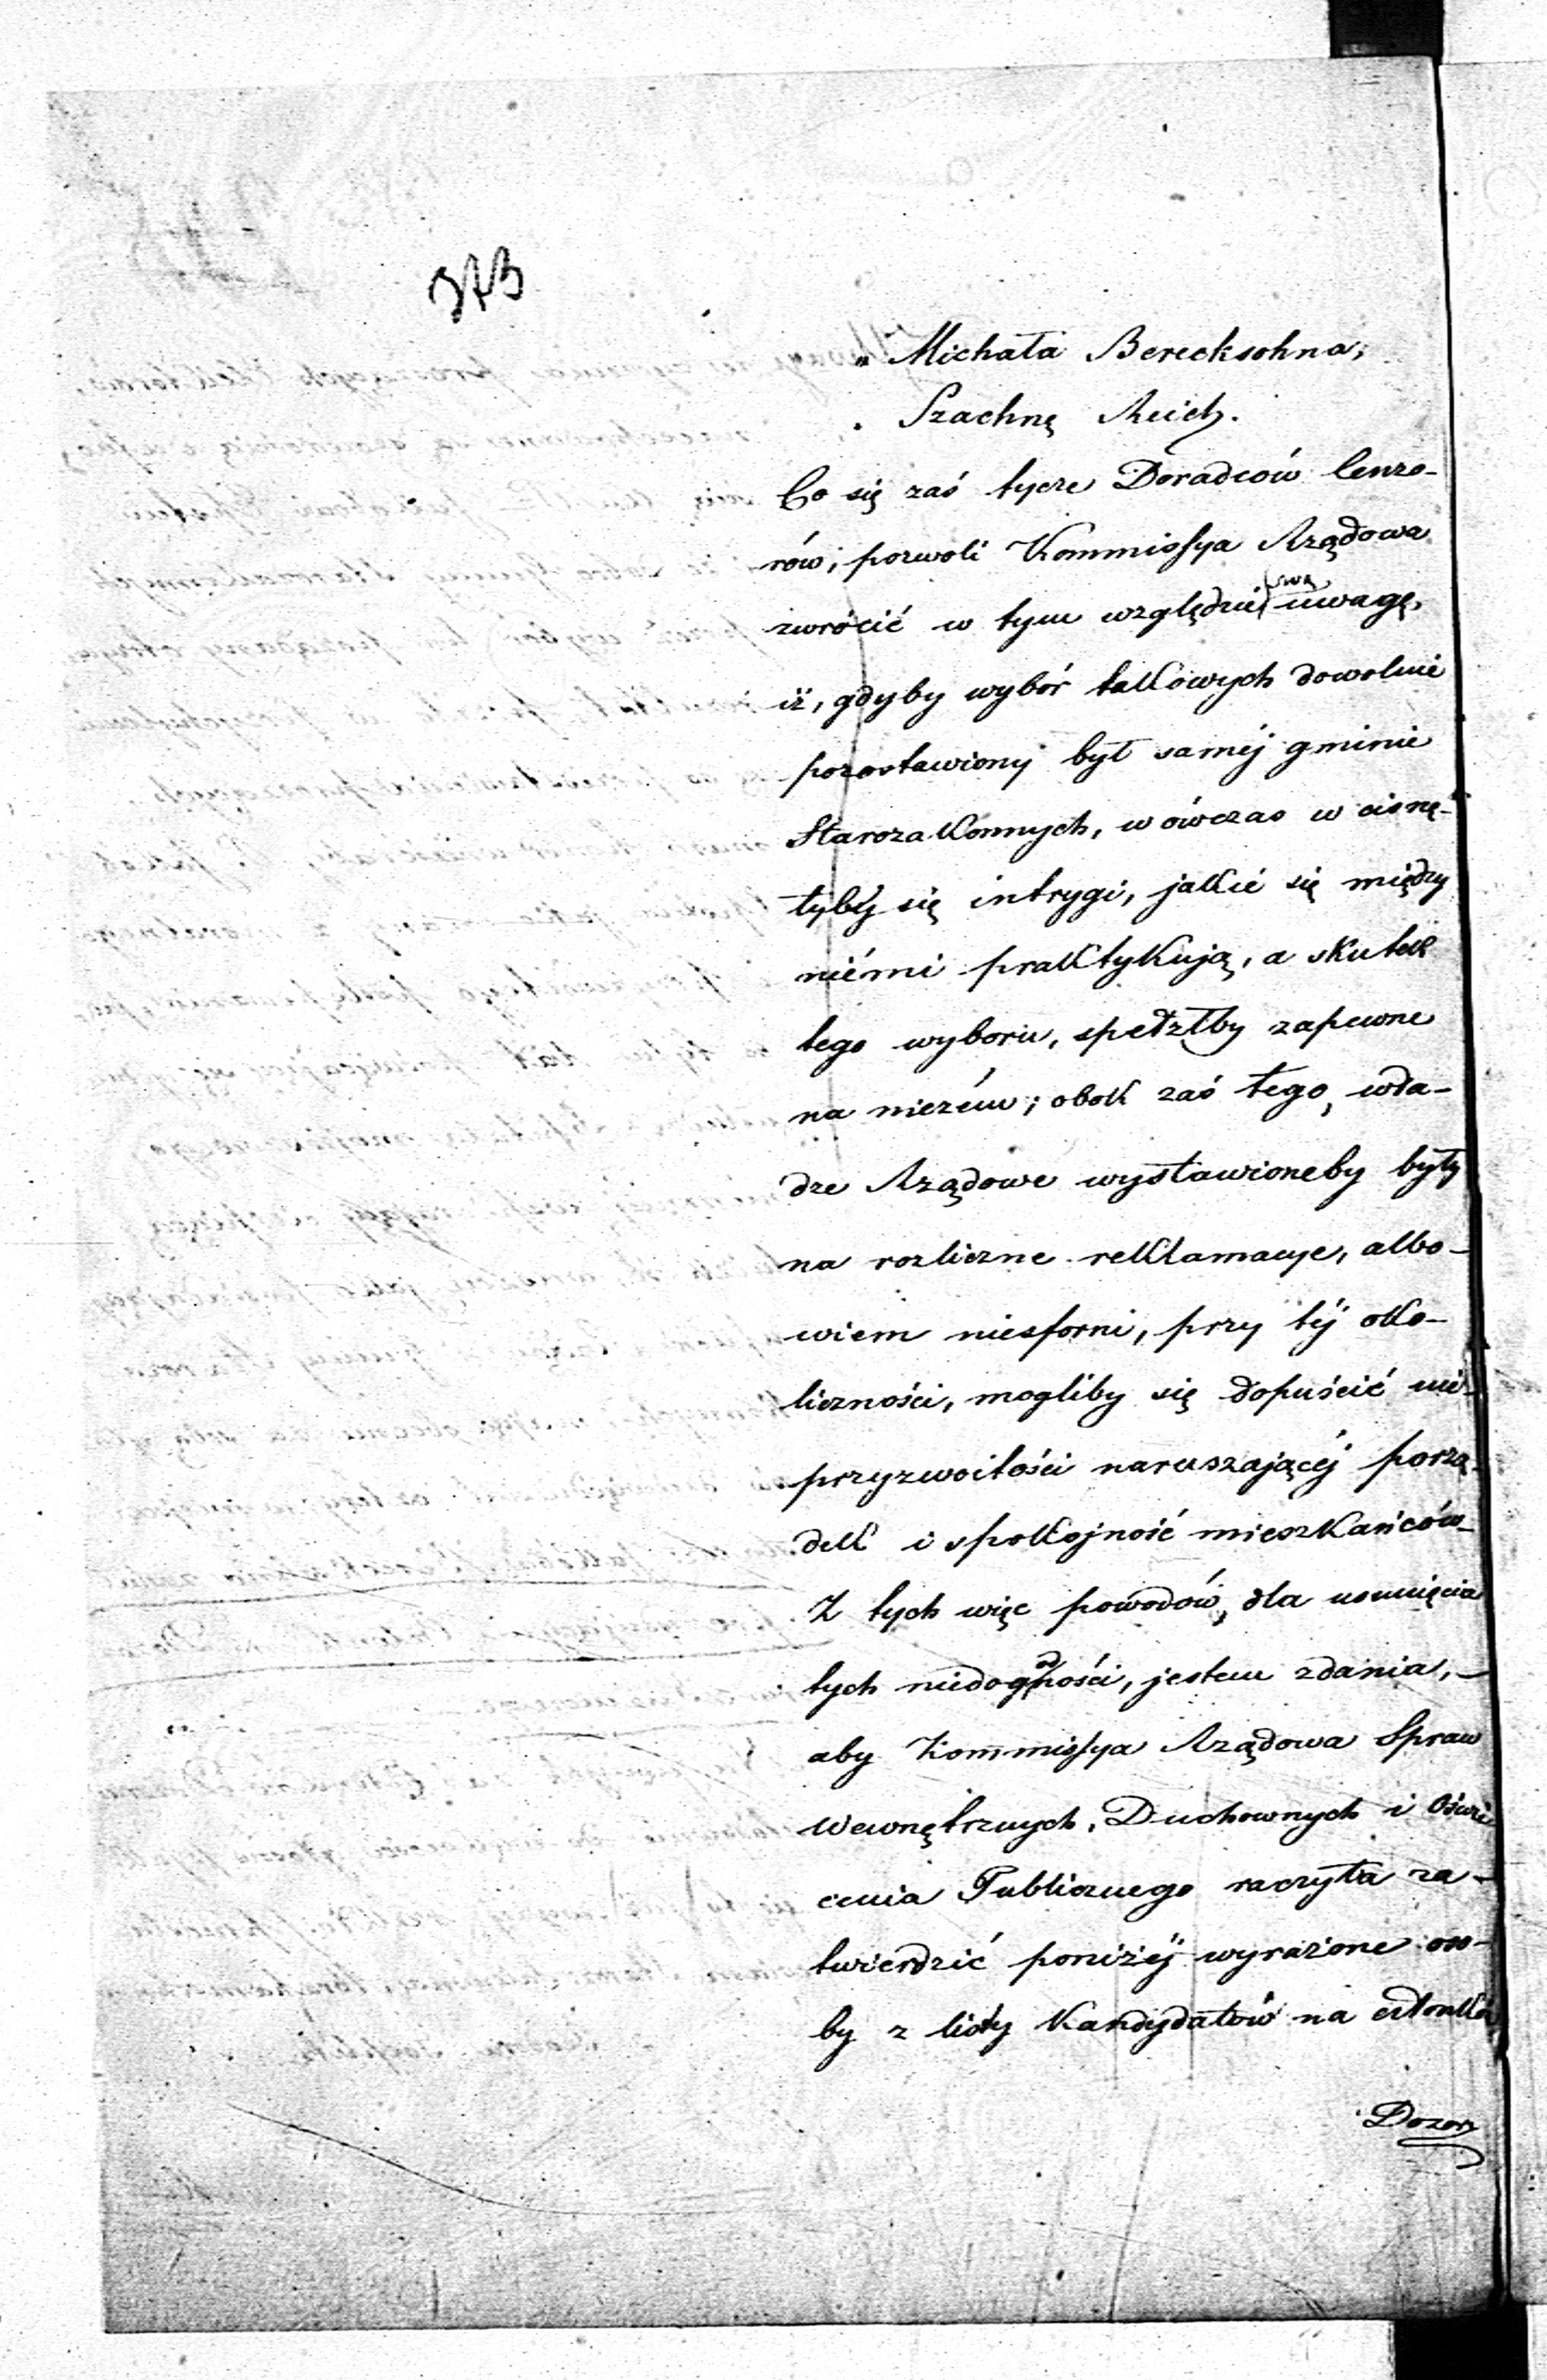 373
" Michała Berecksohna,
" Szachnę Reich.
Co się zaś tycze Doradców Cenzo-
rów, pozwoli Kommissya Rządowa
zwrócić w tym względzie swą uwagę,
iż, gdyby wybór takowych dowolnie
pozostawiony był saméj gminie
Starozakonnych, wówczas wcisnę-
łyby się intrygi, jakie się między
niémi praktykują, a skutek
tego wyboru, spełzłby zapewne
na niczém; obok zaś tego, wła-
dze Rządowe wystawioneby były
na rozliczne reklamacye, albo-
wiem niesforni, przy téj oko-
liczności, mogliby się dopuścić nie-
przyzwoitości naruszającéj porzą-
dek i spokojność mieszkańców_
Z tych więc powodów, dla usunięcia
tych niedogodności, jestem zdania, _
aby Kommissya Rządowa Spraw
Wewnętrznych, Duchownych i Oświe
cenia Publicznego raczyła za-
twierdzić poniżéj wyrażone oso-
by z listy Kandydatów na członków
Dozoru